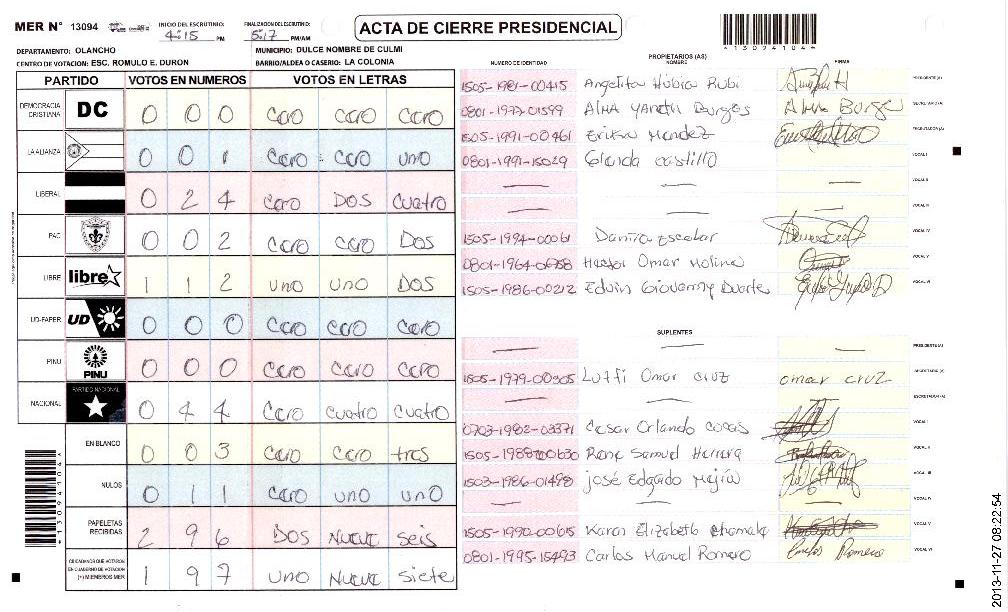 MER N° 13094 INICIO DEL ESCRUTINIO: 4:15 PM FINALIZACION DEL ESCRUTINIO: 5:17 PM/AM
ACTA DE CIERRE PRESIDENCIAL
13094104
DEPARTAMENTO: OLANCHO MUNICIPIO: DULCE NOMBRE DE CULMI
CENTRO DE VOTACION: ESC. ROMULO E. DURON BARRIO/ALDEA O CASERIO: LA COLONIA
PARTIDO VOTOS EN NUMEROS VOTOS EN LETRAS
DEMOCRACIA CRISTIANA DC 0 0 0 Cero Cero Cero
LA ALIANZA 0 0 1 Cero Cero uno
LIBERAL 0 2 4 Cero DOS Cuatro
PAC 0 0 2 Cero Cero DOS
LIBRE libre 1 1 2 uno uno DOS
UD-FAPER UD 0 0 0 Cero Cero Cero
PINU PINU 0 0 0 Cero Cero Cero
NACIONAL PARTIDO NACIONAL 0 4 4 Cero Cuatro Cuatro
EN BLANCO 0 0 3 Cero Cero tres
NULOS 0 1 1 Cero uno uno
PAPELETAS RECIBIDAS 2 9 6 DOS Nueve seis
CIUDADANOS QUE VOTARON EN CUADERNO DE VOTACION (+) MIEMBROS MER 1 9 7 uno Nueve siete
13094104
PROPIETARIOS (AS)
NUMERO DE IDENTIDAD NOMBRE FIRMA
1505-1981-00415 Angelita Nubia Rubi PRESIDENTE (A)
0801-1979-01599 Alma Yaneth Borges Alma Borge SECRETARIO (A)
1505-1991-00461 Erika Mendez ESCRUTADOR (A)
0801-1991-15029 Glenda Castillo VOCAL I
VOCAL II
VOCAL III
1505-1994-00061 Danira Escobar VOCAL IV
Hector Omar Molina VOCAL V
1505-1986-00212 Edwin Giovanny Duarte VOCAL VI
SUPLENTES
PRESIDENTE (A)
1505-1979-00305 Luffi Omar Cruz omar cruz SECRETARIO (A)
ESCRUTADOR (A)
0703-1982-03371 Cesar Orlando VOCAL I
Rene Samuel Herrera VOCAL II
1503-1986-01498 josé Edgardo Mejia VOCAL III
VOCAL IV
1505-1990-00615 Karen Elizabeth VOCAL V
0801-1995-15493 Carlos Manuel Romero Carlos Romero VOCAL VI
2013-11-27 08:22:54